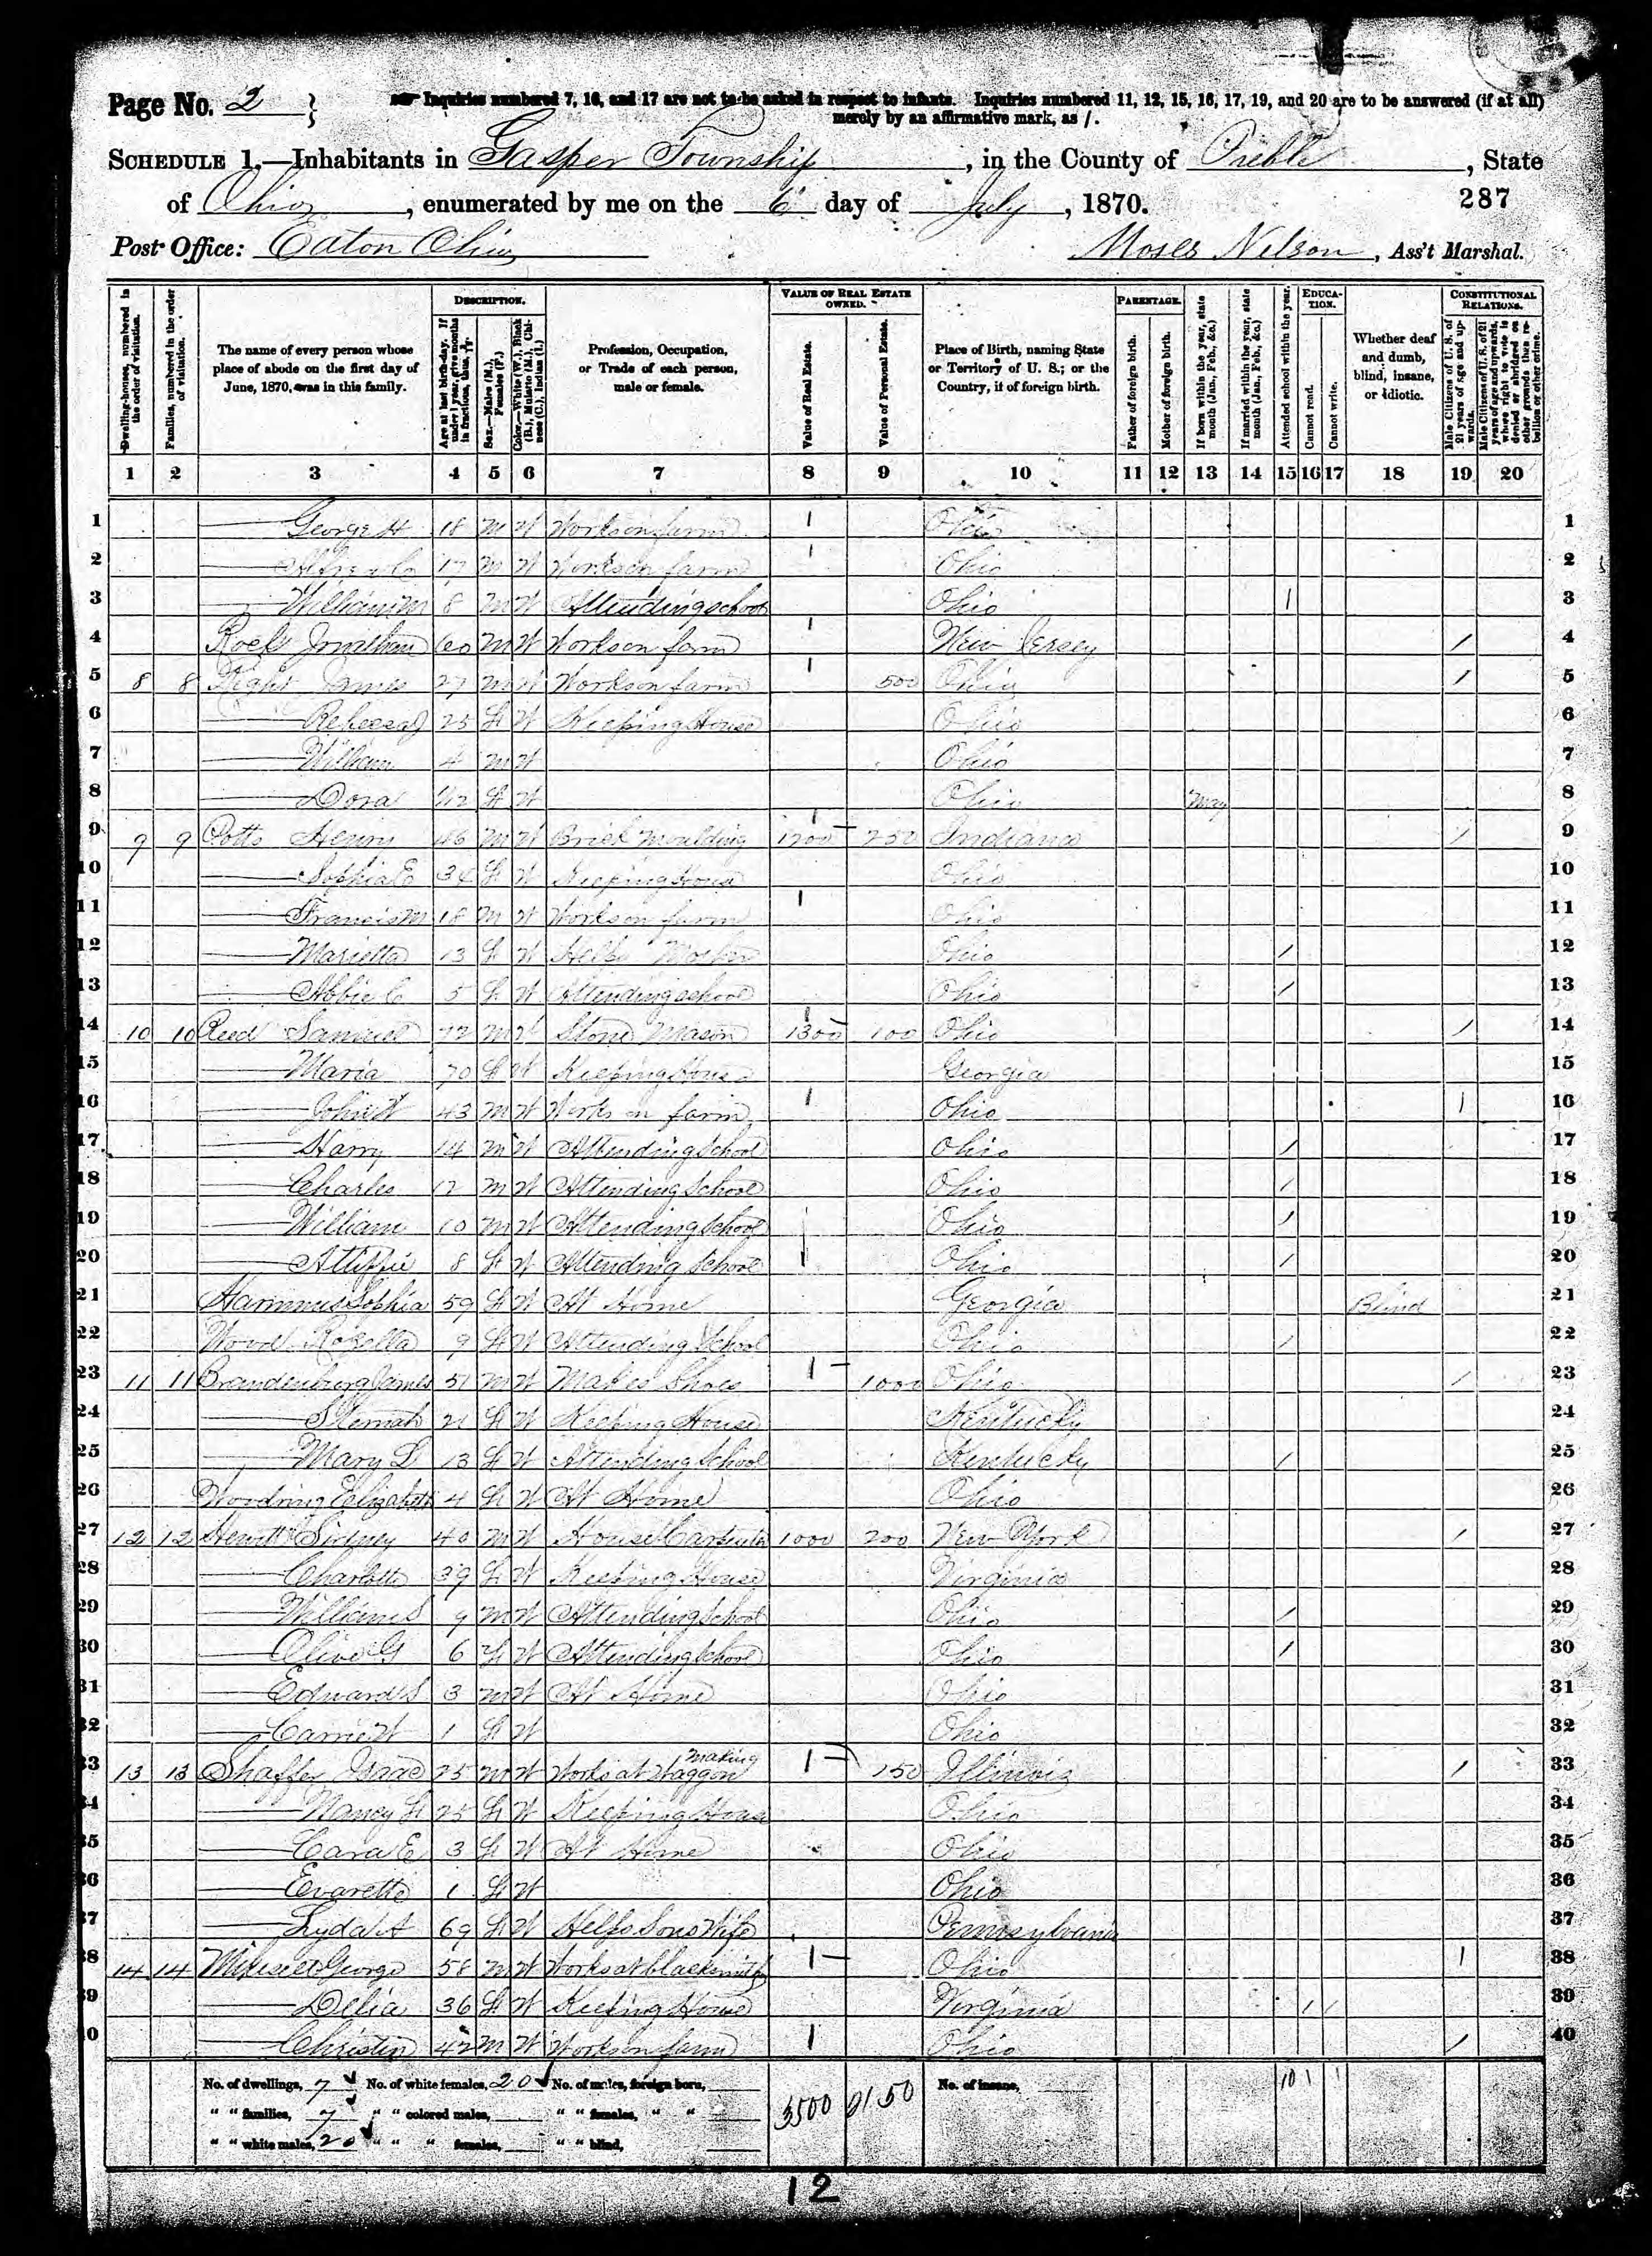 Page No. 2
Inquiries numbered 7, 16, and 17 are not to be asked in respect to infants. Inquiries numbered 11, 12, 15, 16, 17, 19, and 20 are to be answered (if at all)
merely by an affirmative mark, as /.
SCHEDULE 1.—Inhabitants in Gasper Township, in the County of Preble, State
of Ohio, enumerated by me on the 6 day of July, 1870.
287
Post Office: Eaton Ohio
Moses Nelson, Ass't Marshal.
Dwelling-houses, numbered in the order of visitation.
Families, numbered in the order of visitation.
The name of every person whose place of abode on the first day of June, 1870, was in this family.
DESCRIPTION.
Age at last birth-day. If under 1 year, give months in fractions, thus,
Sex.—Males (M.), Females (F.)
Color.—White (W.), Black (B.), Mulatto (M.), Chinese (C.), Indian (I.)
Profession, Occupation, or Trade of each person, male or female.
VALUE OF REAL ESTATE OWNED.
Value of Real Estate.
Value of Personal Estate.
Place of Birth, naming State or Territory of U. S.; or the Country, if of foreign birth.
PARENTAGE.
Father of foreign birth.
Mother of foreign birth.
If born within the year, state month (Jan., Feb., &c.)
If married within the year, state month (Jan., Feb., &c.)
Attended school within the year.
EDUCATION.
Cannot read.
Cannot write.
Whether deaf and dumb, blind, insane, or idiotic.
CONSTITUTIONAL RELATIONS.
Male Citizens of U. S. of 21 years of age and upwards.
Male Citizens of U. S. of 21 years of age and upwards, whose right to vote is denied or abridged on other grounds than rebellion or other crime.
1 2 3 4 5 6 7 8 9 10 11 12 13 14 15 16 17 18 19 20
1 George H 18 M W Works on farm 1 Ohio 1
2 17 M W Works on farm 1 Ohio 2
3 William M 8 M W Attending school Ohio 1 3
4 Jonathan 60 M W Works on farm 1 New Jersey / 4
5 8 8 James 27 M W Works on farm 1 500 Ohio / 5
6 25 F W Keeping House Ohio 6
7 William 4 M W Ohio 7
8 Dora 1/12 F W Ohio May 8
9 9 9 Potts Henry 46 M W Brick Moulding 1200 250 Indiana / 9
10 Sophia E 34 F W Keeping House Ohio 10
11 Francis M 18 M W Works on farm 1 Ohio 11
12 Marietta 13 F W Helps Mother Ohio / 12
13 Abbie C 5 F W Attending school Ohio / 13
14 10 10 Reed Samuel 72 M W Stone Mason 1300 100 Ohio / 14
15 Maria 70 F W Keeping House Georgia 15
16 John W 43 M W Works on farm 1 Ohio 1 16
17 Harry 14 M W Attending School Ohio / 17
18 Charles 12 M W Attending School Ohio / 18
19 William 10 M W Attending School Ohio / 19
20 8 F W Attending School Ohio / 20
21 Sophia 59 F W At Home Georgia Blind 21
22 Wood Rosella 9 F W Attending School Ohio / 22
23 11 11 Brandenburg James 51 M W Makes Shoes 1 — 1000 Ohio / 23
24 21 F W Keeping House Kentucky 24
25 Mary L 13 F W Attending School Kentucky / 25
26 Woodring Elizabeth 4 F W At Home Ohio 26
27 12 12 Hewitt Sidney 40 M W House Carpenter 1000 200 New York / 27
28 Charlotte 39 F W Keeping House Virginia 28
29 William S 9 M W Attending School Ohio / 29
30 Olive G 6 F W Attending School Ohio / 30
31 Edward S 3 M W At Home Ohio 31
32 Carrie W 1 F W Ohio 32
33 13 13 Shaffer Isaac 25 M W Works at Waggon making 1 — 150 Illinois / 33
34 Nancy F 25 F W Keeping House Ohio 34
35 Cara E 3 F W At Home Ohio 35
36 Evarette 1 F W Ohio 36
37 Lydia A 69 F W Helps Sons Wife Pennsylvania 37
38 14 14 Mikesell George 58 M W Works at blacksmithing 1 — Ohio 1 38
39 Delia 36 F W Keeping House Virginia / / 39
40 Christin 42 M W Works on farm 1 Ohio / 40
No. of dwellings, 7 No. of white females, 20 No. of males, foreign born,
" " families, 7 " " colored males, " " females, " "
" " white males, 20 " " " females, " " blind,
3500 2150
No. of insane,
10 1 1
12